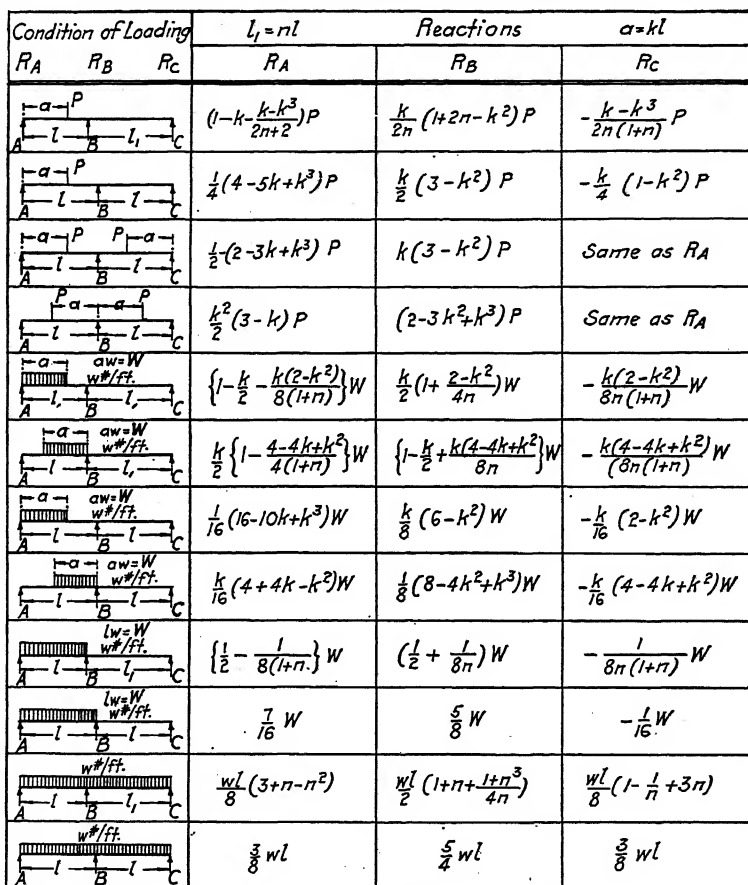 Condition of Loading l₁=nl Reactions a=kl
R_A R_B R_C R_A R_B R_C
a P
A l B l₁ C
(1-k-\frac{k-k³}{2n+2})P \frac{k}{2n}(1+2n-k²)P -\frac{k-k³}{2n(1+n)}P
a P
A l B l C
\frac{1}{4}(4-5k+k³)P \frac{k}{2}(3-k²)P -\frac{k}{4}(1-k²)P
a P P a
A l B l C
\frac{1}{2}-(2-3k+k³)P k(3-k²)P Same as R_A
P a a P
A l B l C
\frac{k²}{2}(3-k)P (2-3k²+k³)P Same as R_A
a aw=W
w#/ft.
A l, B l, C
{1-\frac{k}{2}-\frac{k(2-k²)}{8(1+n)}}W \frac{k}{2}(1+\frac{2-k²}{4n})W -\frac{k(2-k²)}{8n(1+n)}W
a aw=W
w#/ft.
A l B l₁ C
\frac{k}{2}{1-\frac{4-4k+k²}{4(1+n)}}W {1-\frac{k}{2}+\frac{k(4-4k+k²)}{8n}}W -\frac{k(4-4k+k²)}{(8n(1+n)}W
a aw=W
w#/ft.
A l B l C
\frac{1}{16}(16-10k+k³)W \frac{k}{8}(6-k²)W -\frac{k}{16}(2-k²)W
a aw=W
w#/ft.
A l B l C
\frac{k}{16}(4+4k-k²)W \frac{1}{8}(8-4k²+k³)W -\frac{k}{16}(4-4k+k²)W
lw=W
w#/ft.
A l B l₁ C
{\frac{1}{2}-\frac{1}{8(1+n.}}W (\frac{1}{2}+\frac{1}{8n})W -\frac{1}{8n(1+n)}W
lw=W
w#/ft.
A l B l C
\frac{7}{16}W \frac{5}{8}W -\frac{1}{16}W
w#/ft.
A l B l₁ C
\frac{wl}{8}(3+n-n²) \frac{wl}{2}(1+n+\frac{1+n³}{4n}) \frac{wl}{8}(1-\frac{1}{n}+3n)
w#/ft.
A l B l C
\frac{3}{8}wl \frac{5}{4}wl \frac{3}{8}wl